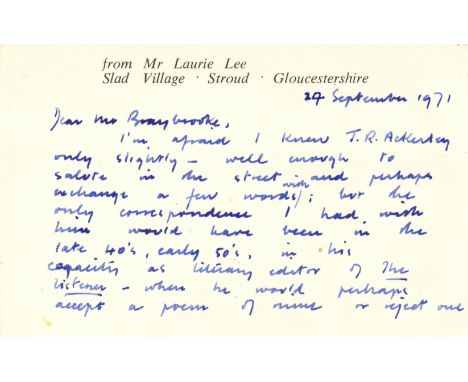 from Mr Laurie Lee
Slad Village · Stroud · Gloucestershire
27 September 1971
Dear Mr Braybrooke,
I'm afraid I knew J.R. Ackerley
only slightly — well enough to
salute in the street and perhaps
exchange a few words with; but the
only correspondence I had with
him would have been in the
late 40's, early 50's, in his
capacity as literary editor of The
Listener — when he would perhaps
accept a poem of mine or reject one